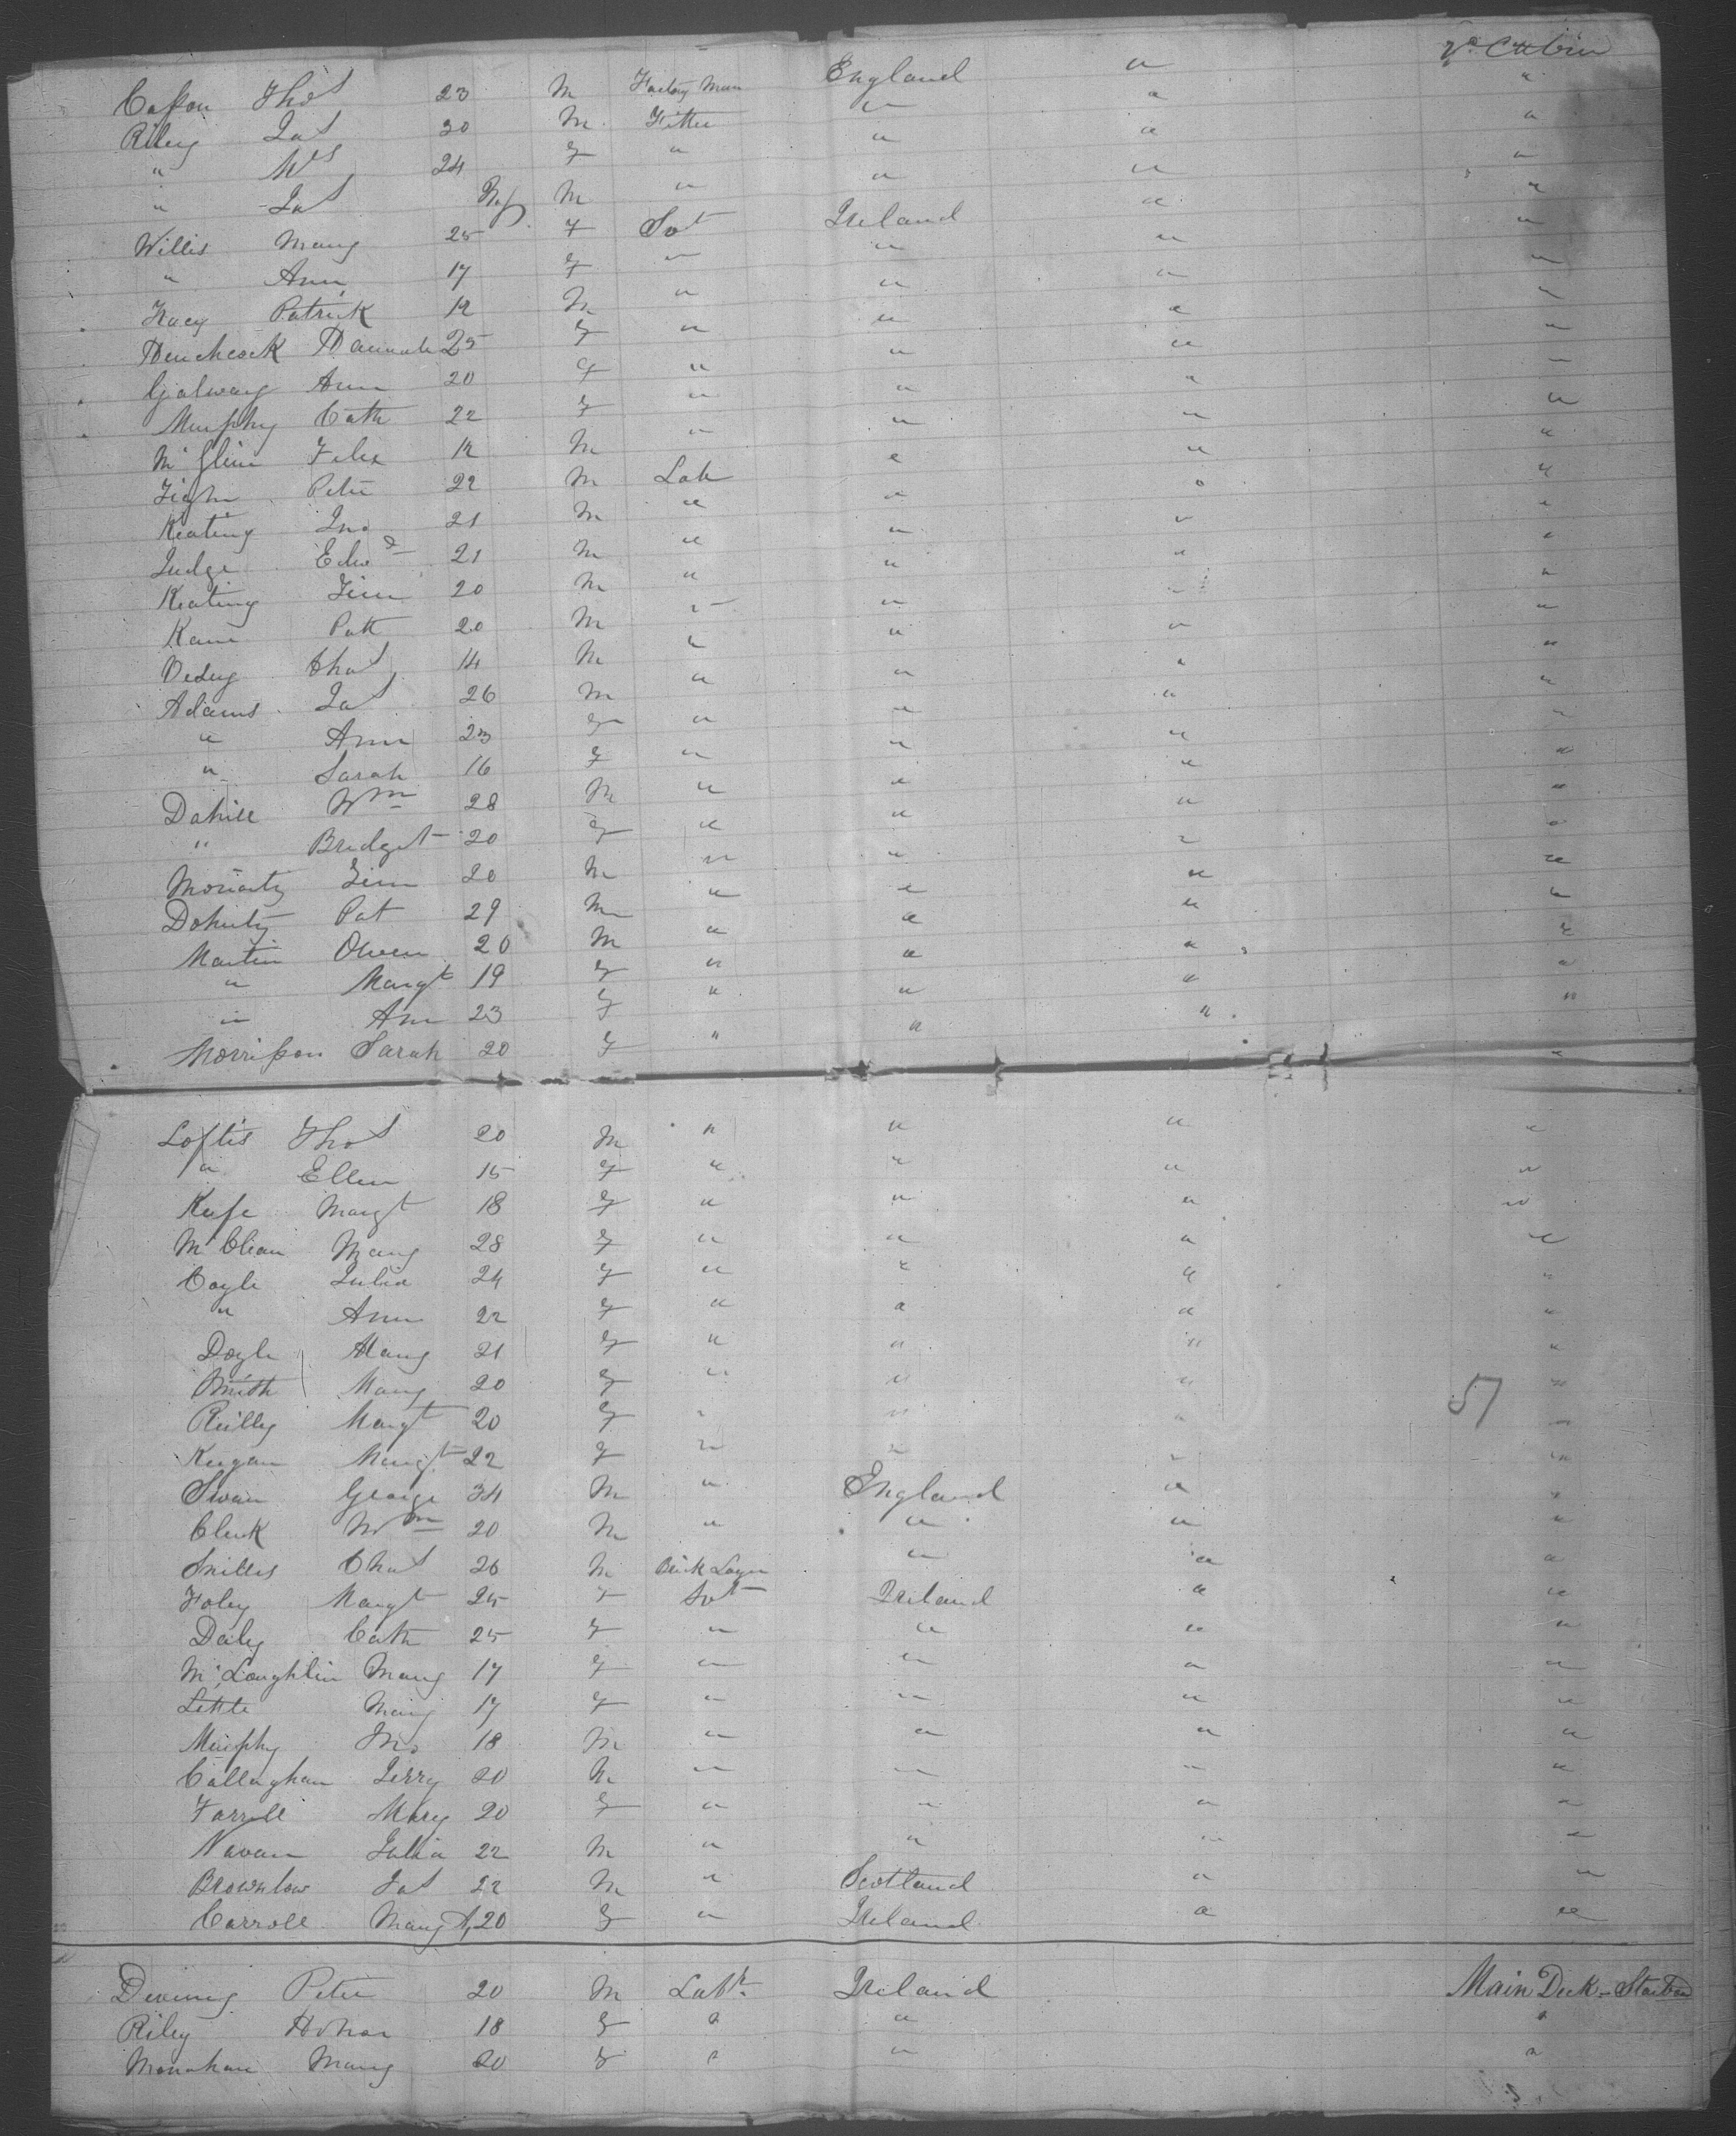 2nd Cabin
Casson Thos 23 M Factory Man England "
Riley Jas 30 M Fitter " " "
" Mrs 24 F " " " "
" Jas Inf M " " " "
Willis Mary 25 F Svt Ireland " "
" Ann 17 F " " " "
Tracy Patrick 12 M " " " "
Hannah 25 F " " " "
Galway Ann 20 F " " " "
Murphy Cath 22 F " " " "
Felix 12 M " " " "
Tighe Peter 22 M Lab " " "
Keating Jno 21 M " " " "
Judge Edwd 21 M " " " "
Keating Jim 20 M " " " "
Kane Patk 20 M " " " "
Thos 14 M " " " "
Adams Jas 26 M " " " "
" Ann 23 F " " " "
" Sarah 16 F " " " "
Dahill Wm 28 M " " " "
" Bridget 20 F " " " "
Moriarty Jim 20 M " " " "
Doherty Pat 29 M " " " "
Martin Owen 20 M " " " "
" Margt 19 F " " " "
" Ann 23 F " " " "
Morrisson Sarah 20 F " " " "
Loftis Thos 20 M " " " "
" Ellen 15 F " " " "
Kufe Margt 18 F " " " "
McClean Mary 28 F " " " "
Coyle Julia 24 F " " " "
" Ann 22 F " " " "
Doyle Mary 21 F " " " "
Smith Mary 20 F " " " "
57
Reilly Margt 20 F " " " "
Keegan Margt 22 F " " " "
Swan George 34 M " England " "
Clerk Wm 20 M " " " "
Chas 26 M Brick Layer " " "
Foley Margt 25 F Svt Ireland " "
Daly Cath 25 F " " " "
McLoughlin Mary 17 F " " " "
Little Mary 17 F " " " "
Murphy Jno 18 M " " " "
Callaghan Jerry 20 M " " " "
Farrell Mary 20 F " " " "
Navan Julia 22 M " " " "
Brownlow Jas 22 M " Scotland " "
Carroll Mary A 20 F " Ireland " "
Peter 20 M Labr. Ireland Main Deck - Starboard
Riley 18 F " " "
Monahan Mary 20 F " " "